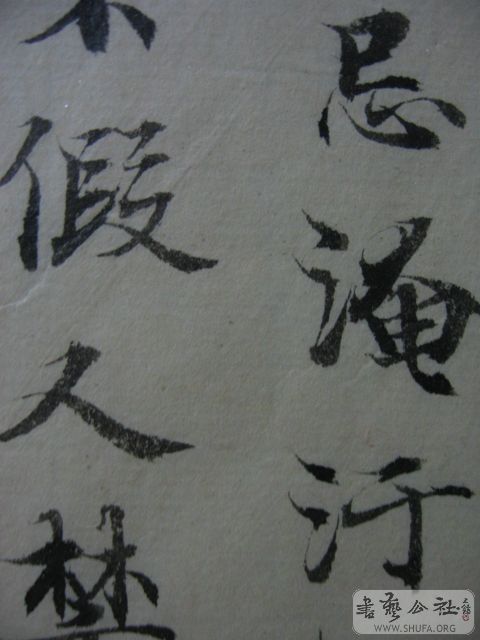 忌淹汙
不假人焚
書藝公社
WWW.SHUFA.ORG